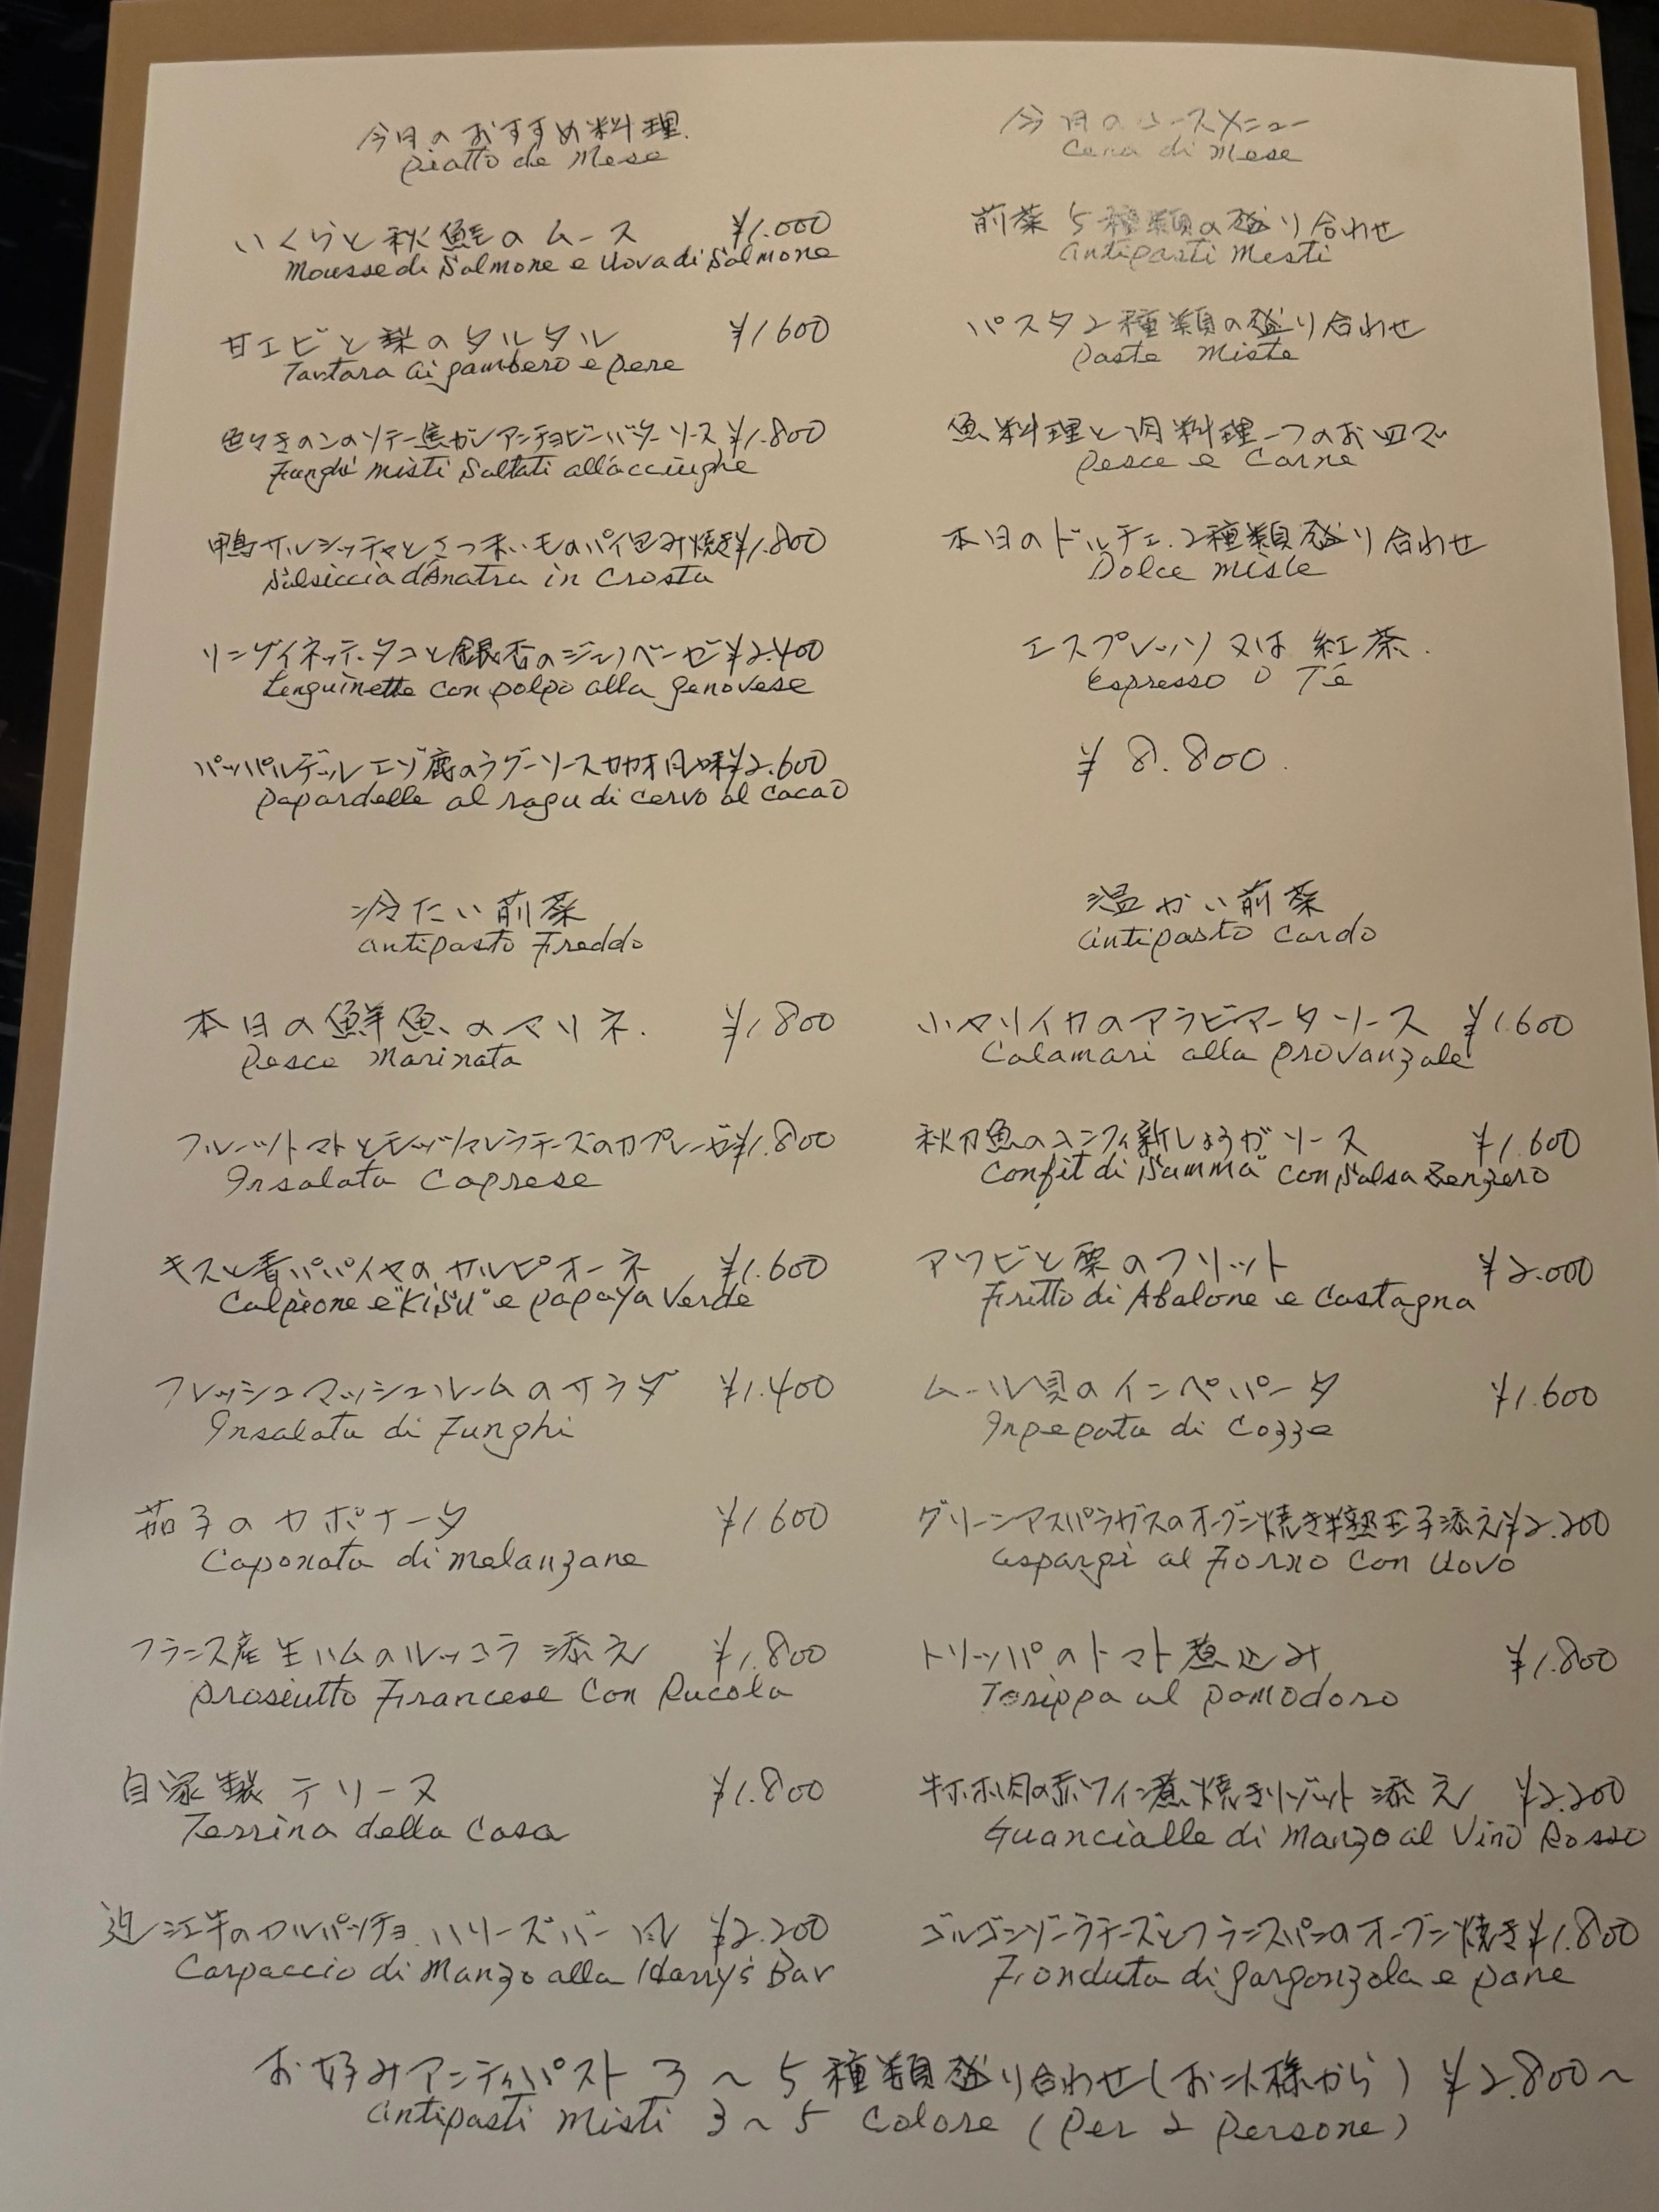 今月のおすすめ料理.
piatto de Mese
いくらと秋鮭のムース ¥1.000
Mousse di Salmone e Uova di Salmone
甘エビと梨のタルタル ¥1600
Tartara ai gambero e pere
色々きのこのソテー焦がしアンチョビーバターソース ¥1.800
Funghi misti Saltati all'acciughe
鴨サルシッチャとさつまいものパイ包み焼き ¥1.800
Salsiccia d'Anatra in Crosta
リングイネッテ.タコと銀杏のジェノベーゼ ¥2.400
Lenguinette con polpo alla genovese
パッパルデッレ エゾ鹿のラグーソースカカオ風味 ¥2.600
papardelle al ragu di cervo al cacao
今月のコースメニュー
Cena di Mese
前菜 5種類の盛り合わせ
antipasti Misti
パスタ2種類の盛り合わせ
paste miste
魚料理と肉料理一つのお皿で
pesce e Carne
本日のドルチェ.2種類盛り合わせ
Dolce miste
エスプレッソ 又は 紅茶.
espresso O Té
¥ 8.800.
冷たい前菜
antipasto Freddo
本日の鮮魚のマリネ. ¥1.800
pesce Marinata
フルーツトマトとモッツァレラチーズのカプレーゼ ¥1.800
Insalata Caprese
キスと青パパイヤのカルピオーネ ¥1.600
Calpione e "KiSU" e papaya Verde
フレッシュマッシュルームのサラダ ¥1.400
Insalata di Funghi
茄子のカポナータ ¥1600
Caponata di melanzane
フランス産生ハムのルッコラ添え ¥1.800
prosiutto Francese Con Rucola
自家製テリーヌ ¥1.800
Terrina della Casa
近江牛のカルパッチョ.ハリーズバー風 ¥2.200
Carpaccio di Manzo alla Harry's Bar
温かい前菜
antipasto Cardo
小ヤリイカのアラビアータソース ¥1.600
Calamari alla provanzale
秋刀魚のコンフィ新しょうがソース ¥1.600
Confit di "Samma" con Salsa Zenzero
アワビと栗のフリット ¥2.000
Fritto di Abalone e Castagna
ムール貝のインペパータ ¥1.600
Inpepata di Cozze
グリーンアスパラガスのオーブン焼き半熟玉子添え ¥2.200
aspargi al Forno Con Uovo
トリッパのトマト煮込み ¥1.800
Torippa al pomodoro
牛ホホ肉の赤ワイン煮焼きリゾット添え ¥2.200
Guancialle di Manzo al Vino Rosso
ゴルゴンゾーラチーズとフランスパンのオーブン焼き ¥1.800
Fonduta di gorgonzola e pane
お好みアンティパスト 3〜5種類盛り合わせ(お二人様から) ¥2.800〜
antipasti Misti 3〜5 Colore (per 2 persone)